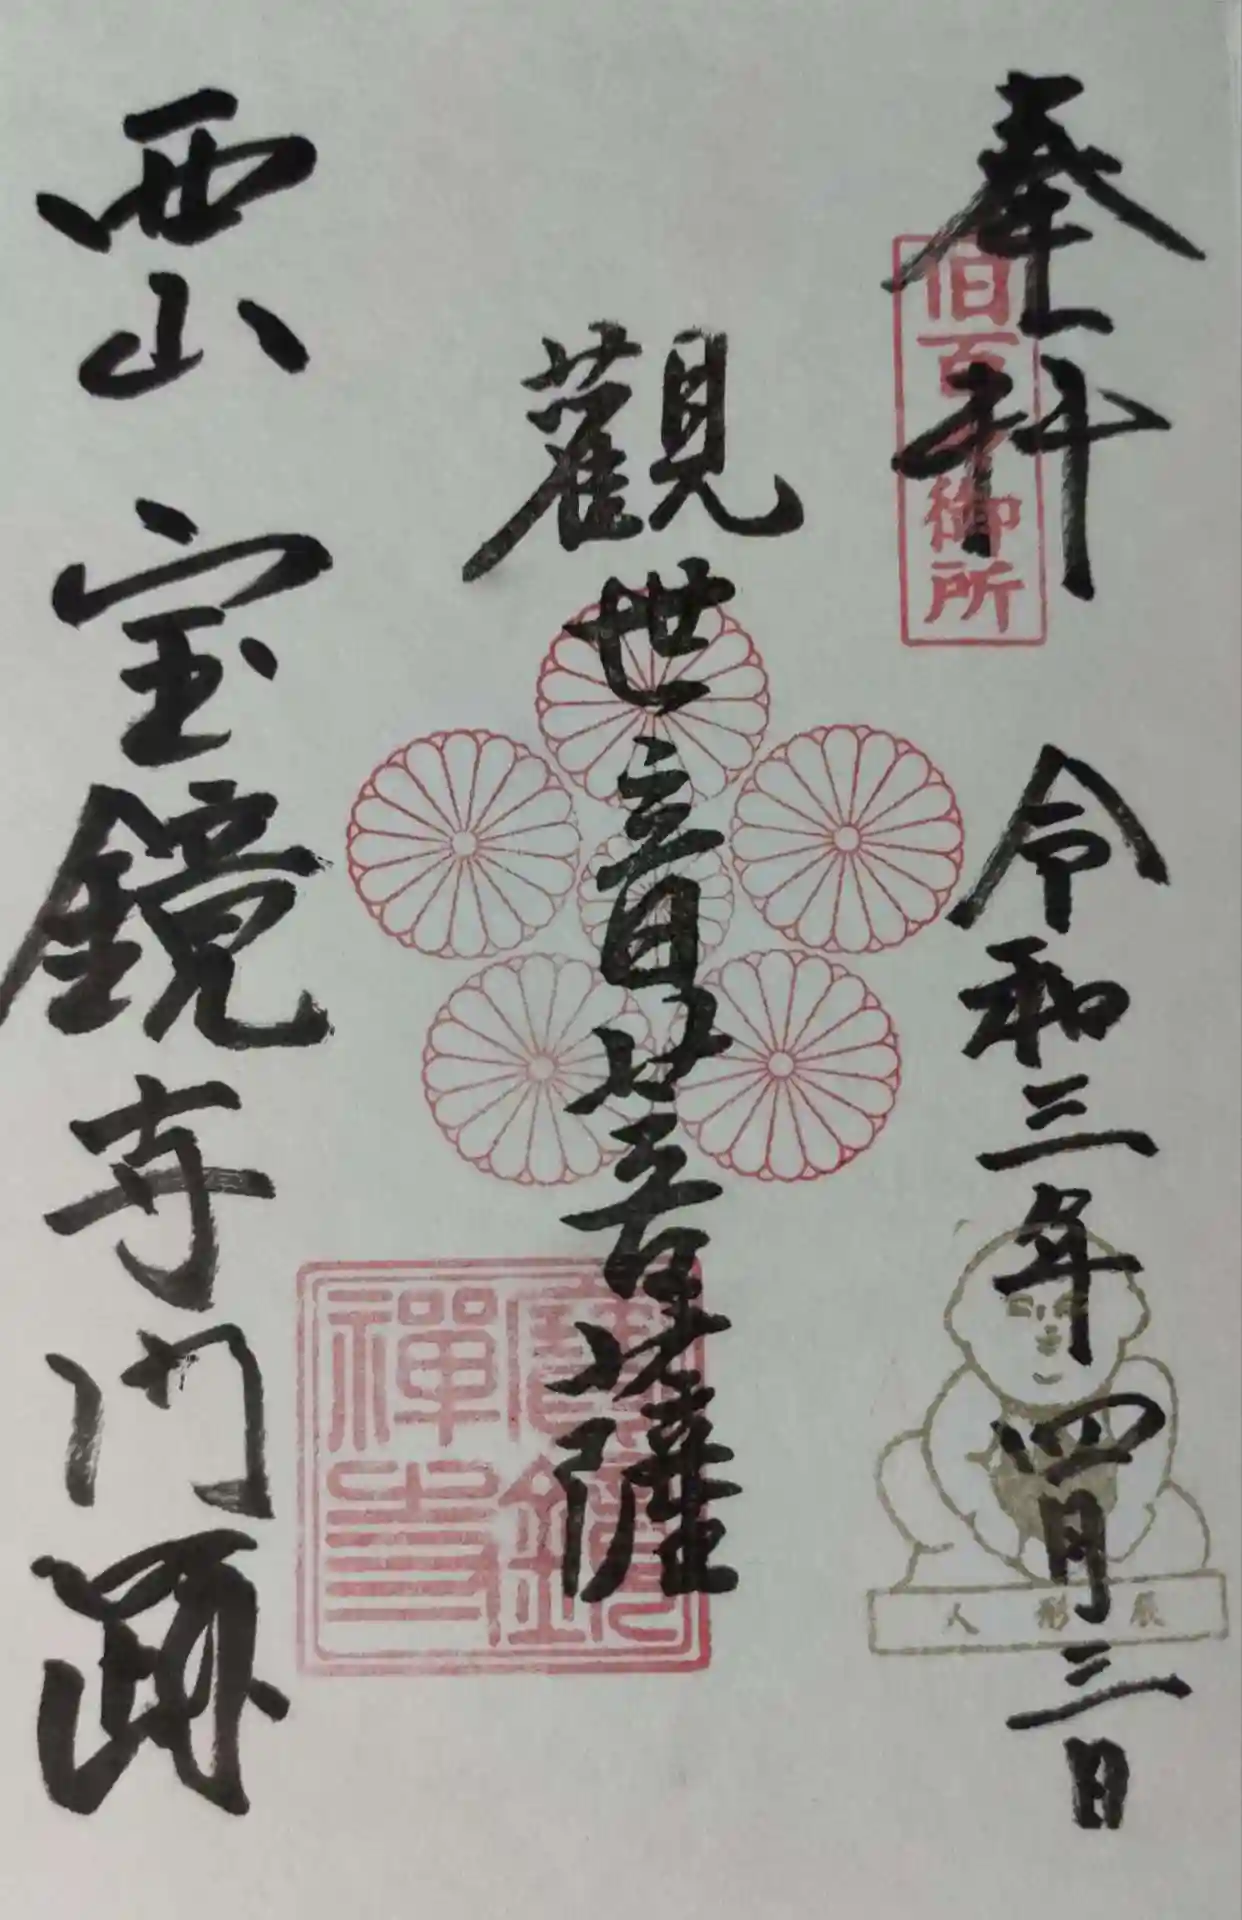 奉拝 令和三年四月三日
旧百々御所
觀世音菩薩
寶鏡
禪寺
西山 宝鏡寺門跡
人形展